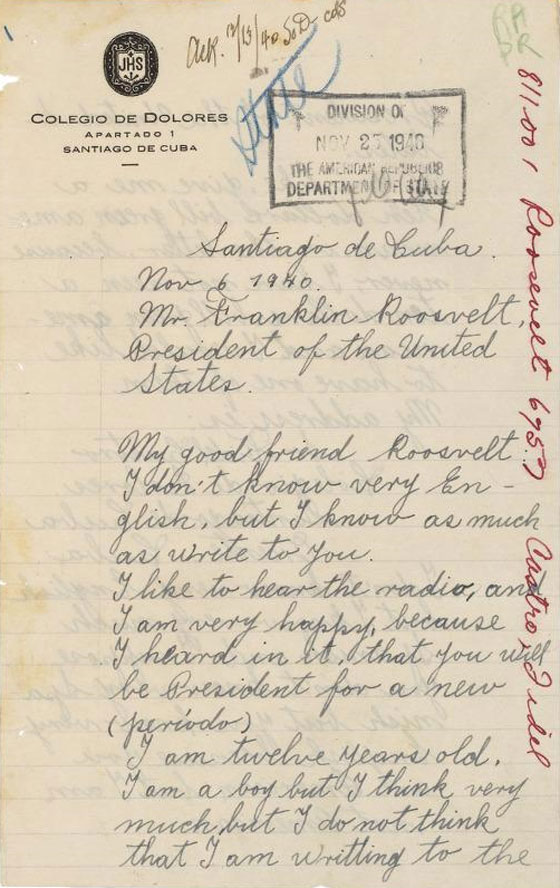 Ack. 12/13/40
State
RA
DR
JHS
COLEGIO DE DOLORES
APARTADO 1
SANTIAGO DE CUBA
DIVISION OF
NOV 27 1940
THE AMERICAN REPUBLICS
DEPARTMENT OF STATE
811.001 Roosevelt 6957
Castro, Fidel
Santiago de Cuba.
Nov 6 1940.
Mr Franklin Roosvelt,
President of the United
States.
My good friend Roosvelt
I don't know very En-
glish, but I know as much
as write to you.
I like to hear the radio, and
I am very happy, because
I heard in it, that you will
be President for a new
(período)
I am twelve years old.
I am a boy but I think very
much but I do not think
that I am writting to the